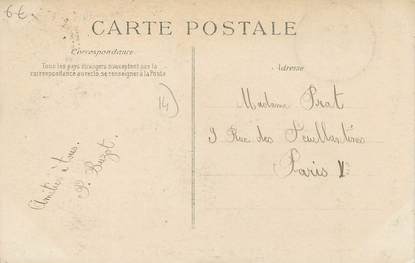 6€
CARTE POSTALE
Correspondance
Tous les pays étrangers n'acceptent pas la
correspondance au recto, se renseigner à la Poste
Adresse
14)
Madame Prat
9 Rue des Feuillantines
Paris V
Amitiés à tous.
P. Buzot.